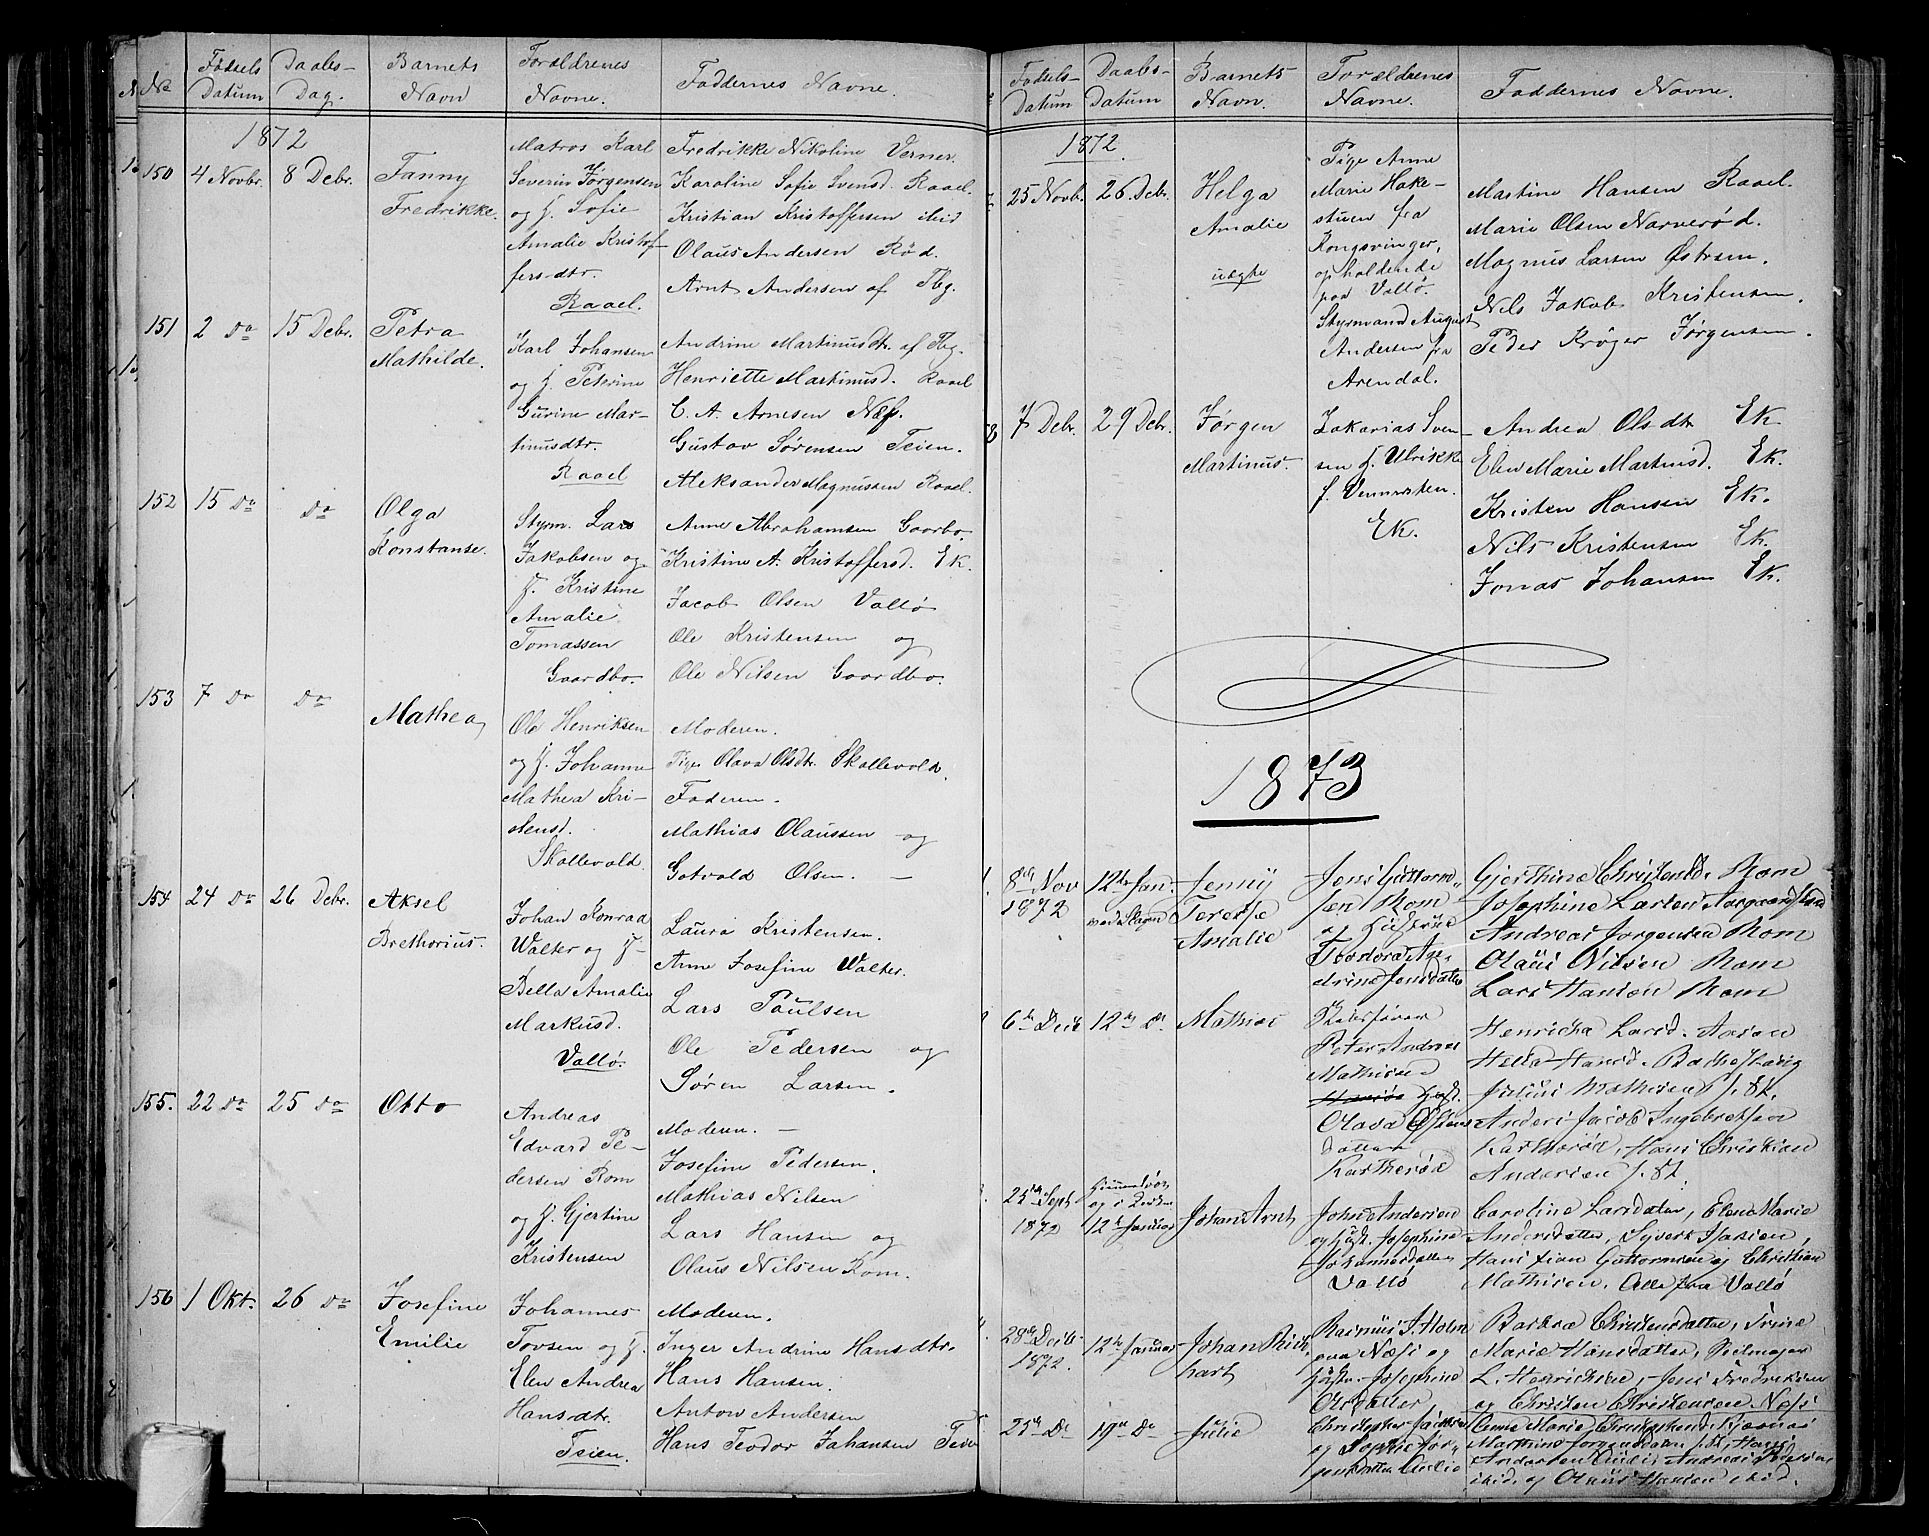 No.
Fødsels Datum
Daabs-Dag.
Barnets Navn
Forældrenes Navne.
Faddernes Navne.
1872
150
4 Novbr.
8 Debr.
Fanny
Fredrikke.
Matros Karl
Severin Jørgensen
og H. Sofie
Amalie Kristof-
fersdtr.
Raael.
Fredrikke Nikoline Verner.
Karoline Sofie Svensd. Raael.
Kristian Kristoffersen ibid
Olaus Andersen Rød.
Arnt Andersen af Tbg.
151
2 do
15 Debr.
Petra
Mathilde.
Karl Johansen
og H. Peterine
Gurine Mar-
tinusdtr.
Raael
Andrine Martinusdtr. af Tbg.
Henriette Martinusd. Raael
C. A. Arnesen Næss.
Gustav Sørensen Teien.
Aleksander Magnussen Raael.
152
15 do
do
Olga
Konstanse.
Stym. Lars
Jakobsen og
H. Kristine
Amalie
Tomassen
Gaardbo.
Anne Abrahamsen Gaarbo.
Kristine A. Kristoffersd. Ek.
Jacob Olsen Vallø
Ole Kristensen og
Ole Nilsen Gaardbo.
153
7 do
do
Mathea
Ole Henriksen
og H. Johanne
Mathea Kri-
stensd.
Skallevold
Moderen.
Pige Olava Olsdtr. Skallevold.
Faderen.
Mathias Olaussen og
Gotvald Olsen. —
154
24 do
26 Debr.
Aksel
Brethorius.
Johan Konrad
Walter og H.
Bella Amalie
Markusd.
Vallø.
Laura Kristensen.
Anne Josefine Walter.
Lars Poulsen
Ole Pedersen og
Søren Larsen.
155.
22 do
25 do
Otto
Andreas
Edvard Pe-
dersen Rom
og H. Gjertine
Kristensen
Moderen. —
Josefine Pedersen.
Mathias Nilsen
Lars Hansen og
Olaus Nilsen Rom.
156
1 Okt.
26 do
Josefine
Emilie
Johannes
Tovsen og H.
Elen Andrea
Hansdtr.
Teien.
Moderen.
Inger Andrine Hansdtr.
Hans Hansen.
Anton Andersen
Hans Teodor Johansen Teien
Fødsels-Datum
Daabs-Datum
Barnets Navn.
Forældrenes Navne.
Faddernes Navne.
1872.
25 Novb.
26 Deb.
Helga
Amalie
uægte
Pige Anne
Marie Hake-
stuen fra
Kongsvinger,
opholdende
paa Vallø.
Styrmand August
Andersen fra
Arendal.
Martine Hansen Raael.
Marie Olsen Narverød.
Magnus Larsen Østrem.
Nils Jakob Kristensen.
Peder Krøger Jørgensen.
7 Debr.
29 Debr.
Jørgen
Martinus.
Zakarias Sven-
sen H. Ulrikke
Ek.
Andrea Olsdtr Ek
Elen Marie Martinsd. Ek.
Kristen Hansen Ek.
Nils Kristensen Ek
Jonas Johansen Ek.
1873
1.
8de Nov
1872
12te Jan.
ved Slagen
Jenny
Terese
Amalie
Jens Guttorm-
sen Rom
og Hustrue
Jensdatter
Gjerthine Christensd. Rom
Josephine Larsen
Andreas Jørgensen Rom
Olaus Nilsen Rom
Lars Hansen Rom
6te Decb
12te do
Mathias
Peter Andreas
Mathisen
Olava
datter
Henricha Larsd.
Julius Mathisen
Anders Jacob Ingebretsen
Hans Christian
Andersen
25de Sept
1872
12te Januar
Johan Arnt
John Andersen
og Hust. Josephine
Johannesdatter
Vallø
Caroline Larsdatter, Elene Marie
Andersdatter, Syvert
Hans Guttormsen og Christian
Mathisen, Alle fra Vallø
28de Decb
1872.
12te Januar
Johan Rich
hart
Rasmus J. Holm
paa Næss og
Hustr. Josephine
Olsdatter
Marie Hansdatter,
L. Henrichsen, Jens Fredriksen
og Christen Christensen Næss
25de do
19de do
Julie
og Sophie Jør-
gensdatter
Anne Marie
ibid. og Olaus Hansen ibid.